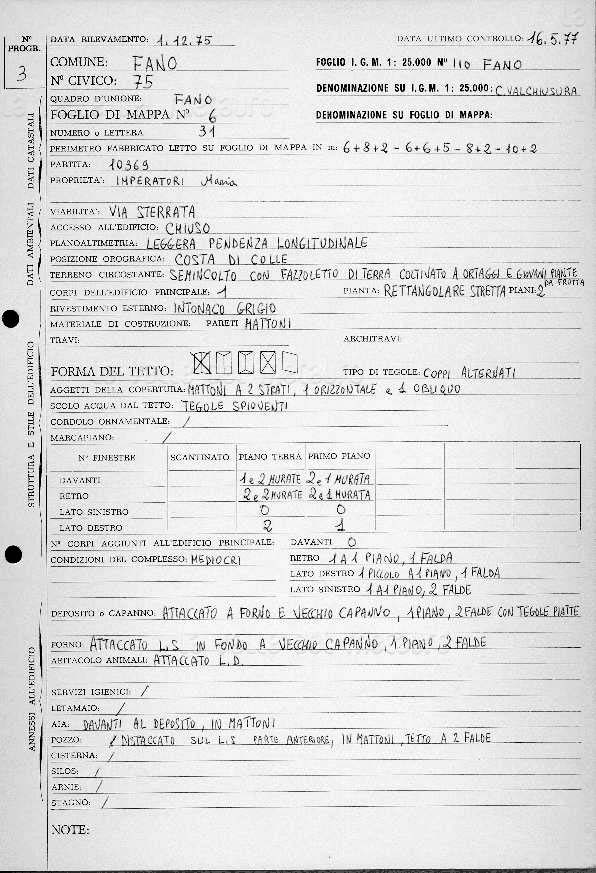 N° PROGR. 3
DATA RILEVAMENTO: 1.12.75 DATA ULTIMO CONTROLLO: 16.5.77
COMUNE: FANO FOGLIO I.G.M. 1: 25.000 N° 110 FANO
N° CIVICO: 75 DENOMINAZIONE SU I.G.M. 1: 25.000: C. VALCHIUSURA
QUADRO D'UNIONE: FANO
FOGLIO DI MAPPA N° 6 DENOMINAZIONE SU FOGLIO DI MAPPA:
NUMERO o LETTERA 31
PERIMETRO FABBRICATO LETTO SU FOGLIO DI MAPPA IN m: 6+8+2-6+6+5-8+2-10+2
PARTITA: 10369
PROPRIETA': IMPERATORI Maria
DATI CATASTALI
VIABILITA': VIA STERRATA
ACCESSO ALL'EDIFICIO: CHIUSO
PLANOALTIMETRIA: LEGGERA PENDENZA LONGITUDINALE
POSIZIONE OROGRAFICA: COSTA DI COLLE
TERRENO CIRCOSTANTE: SEMINCOLTO CON FAZZOLETTO DI TERRA COLTIVATO A ORTAGGI E GIOVANI PIANTE DA FRUTTA
DATI AMBIENTALI
CORPI DELL'EDIFICIO PRINCIPALE: 1 PIANTA: RETTANGOLARE STRETTA PIANI: 2
RIVESTIMENTO ESTERNO: INTONACO GRIGIO
MATERIALE DI COSTRUZIONE: PARETI MATTONI
TRAVI: ARCHITRAVI:
FORMA DEL TETTO: TIPO DI TEGOLE: COPPI ALTERNATI
AGGETTI DELLA COPERTURA: MATTONI A 2 STRATI, 1 ORIZZONTALE e 1 OBLIQUO
SCOLO ACQUA DAL TETTO: TEGOLE SPIOVENTI
CORDOLO ORNAMENTALE: /
MARCAPIANO: /
N° FINESTRE SCANTINATO PIANO TERRA PRIMO PIANO
DAVANTI 1 e 2 MURATE 2 e 1 MURATA
RETRO 2 e 2 MURATE 2 e 1 MURATA
LATO SINISTRO 0 0
LATO DESTRO 2 1
N° CORPI AGGIUNTI ALL'EDIFICIO PRINCIPALE: DAVANTI 0
CONDIZIONI DEL COMPLESSO: MEDIOCRI RETRO 1 A 1 PIANO, 1 FALDA
LATO DESTRO 1 PICCOLO A 1 PIANO, 1 FALDA
LATO SINISTRO 1 A 1 PIANO, 2 FALDE
STRUTTURA E STILE DELL'EDIFICIO
DEPOSITO o CAPANNO: ATTACCATO A FORNO E VECCHIO CAPANNO, 1 PIANO, 2 FALDE CON TEGOLE PIATTE
FORNO: ATTACCATO L.S. IN FONDO A VECCHIO CAPANNO, 1 PIANO, 2 FALDE
ABITACOLO ANIMALI: ATTACCATO L.D.
SERVIZI IGIENICI: /
LETAMAIO: /
AIA: DAVANTI AL DEPOSITO, IN MATTONI
POZZO: / DISTACCATO SUL L.S. PARTE ANTERIORE, IN MATTONI, TETTO A 2 FALDE
CISTERNA: /
SILOS: /
ARNIE: /
STAGNO: /
ANNESSI ALL'EDIFICIO
NOTE: